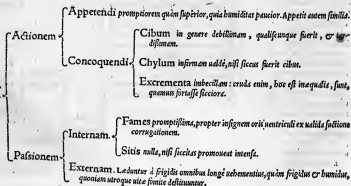 Appetendi promptiorem quàm superior, quia humiditas paucior. Appetit autem similia.
Actionem
Cibum in genere debillimam, qualiscunque fuerit, &
Concoquendi
Chylum infirmam valdè, nisi siccus fuerit cibus.
Excrementa imbecillam: cruda enim, hoc est inæqualia, sunt,
quamuis fortasse sicciora.
Internam.
Fames promptissima, propter insignem oris ventriculi ex valida suctione
corrugationem.
Sitis nulla, nisi siccitas promoueat intensa.
Passionem
Externam. Læduntur à frigidis omnibus longè vehementius, quàm frigidus & humidus,
quoniam vtroque vitæ fomite destituuntur.